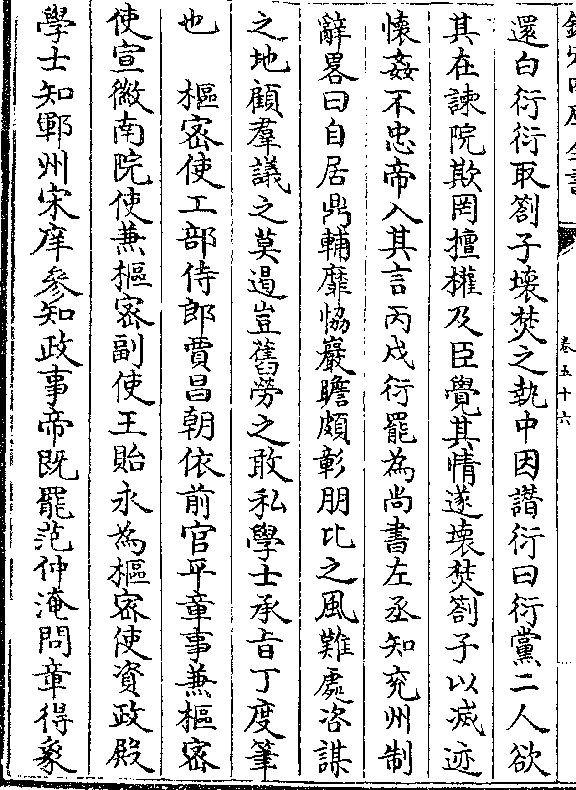 欽定四庫全書
卷五十六
還白衍衍取劄子壞焚之執中因譖衍曰衍黨二人欲
其在諫院欺罔擅權及臣覺其情遂壞焚劄子以滅迹
懷姦不忠帝入其言丙戌衍罷為尚書左丞知兖州制
辭畧曰自居鼎輔靡恊巖瞻頗彰朋比之風難處咨謀
之地顧羣議之莫遏豈舊勞之敢私學士承旨丁度筆
也　樞密使工部侍郎賈昌朝依前官平章事兼樞密
使宣徽南院使兼樞密副使王貽永為樞密使資政殿
學士知鄆州宋庠參知政事帝既罷范仲淹問章得象